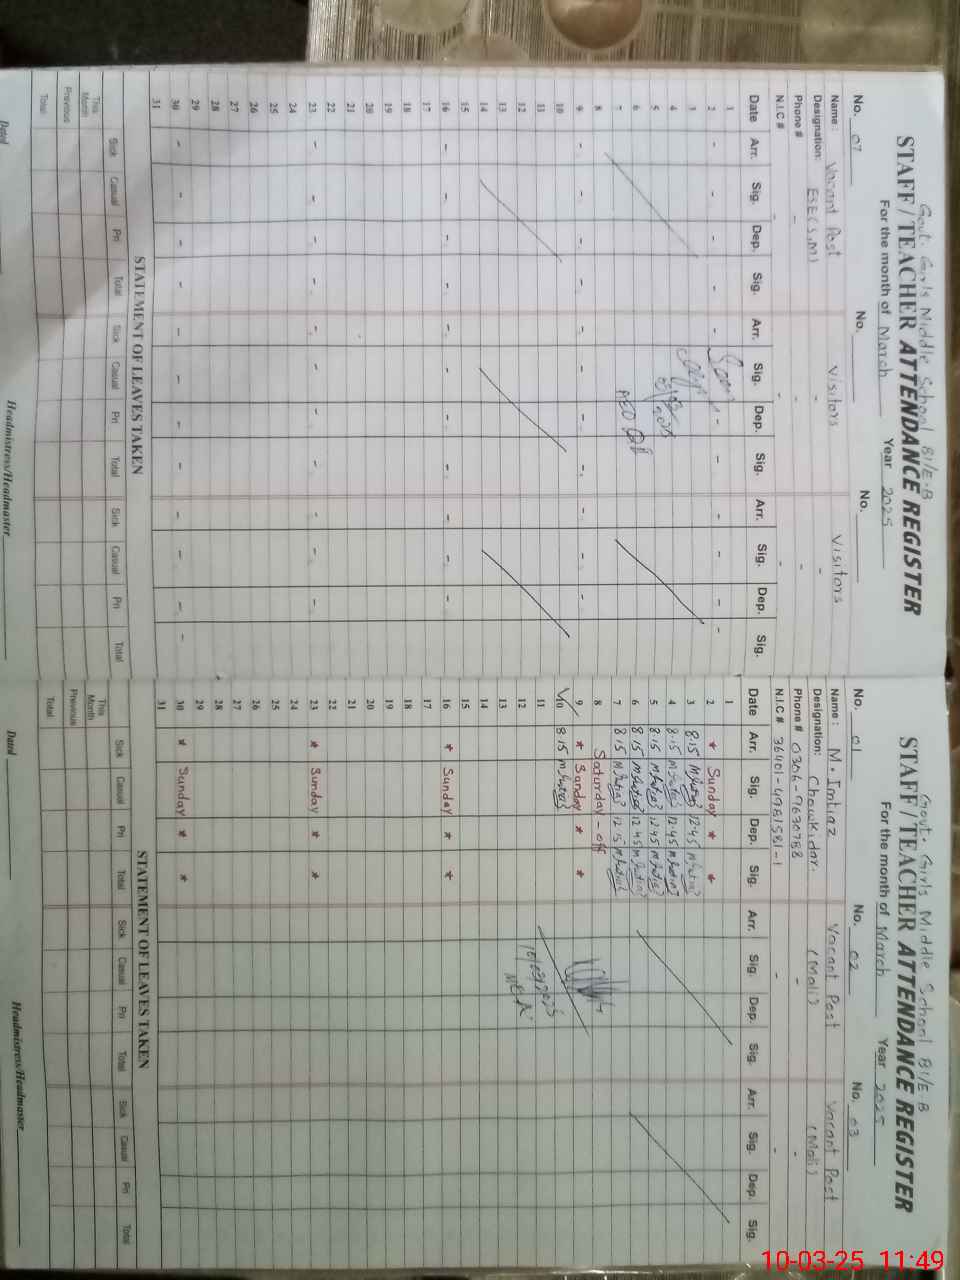 Govt. Girls Middle School 81/E.B
STAFF / TEACHER ATTENDANCE REGISTER
For the month of March Year 2025
No. 07 No. No.
Name : Vacant Post Visitors Visitors
Designation: ESE(S,M) -
Phone # - - -
N.I.C # - - -
Date Arr. Sig. Dep. Sig. Arr. Sig. Dep. Sig. Arr. Sig. Dep. Sig.
1
2 - - - - - - - - - - -
3
4
5 05/03/2025
6
7 AEO
8
9 - - - - - - - - - - - -
10
11
12
13
14
15
16 - - - - - - - - - - - -
17
18
19
20
21
22
23 - - - - - - - - - - - -
24
25
26
27
28
29
30 - - - - - - - - - - - -
31
STATEMENT OF LEAVES TAKEN
Sick Casual Pri Total Sick Casual Pri Total Sick Casual Pri Total
This Month
Previous
Total
Dated Headmistress/Headmaster
Govt. Girls Middle School 81/E.B
STAFF / TEACHER ATTENDANCE REGISTER
For the month of March Year 2025
No. 01 No. 02 No. 03
Name : M. Imtiaz Vacant Post Vacant Post
Designation: Chowkidar. (Mali) (Mali)
Phone # 0306-7630788 - -
N.I.C # 36401-4981581-1 - -
Date Arr. Sig. Dep. Sig. Arr. Sig. Dep. Sig. Arr. Sig. Dep. Sig.
1
2 * Sunday * *
3 8:15 M.Imtiaz 12:45 M.Imtiaz
4 8:15 M.Imtiaz 12:45 M.Imtiaz
5 8:15 M.Imtiaz 12:45 M.Imtiaz
6 8:15 M.Imtiaz 12:45 M.Imtiaz
7 8:15 M.Imtiaz 12:15 M.Imtiaz
8 Saturday - off
9 * Sunday * *
10 8:15 M.Imtiaz
11 10/03/2025
12 MEA
13
14
15
16 * Sunday * *
17
18
19
20
21
22
23 * Sunday * *
24
25
26
27
28
29
30 * Sunday * *
31
STATEMENT OF LEAVES TAKEN
Sick Casual Pri Total Sick Casual Pri Total Sick Casual Pri Total
This Month
Previous
Total
Dated Headmistress/Headmaster
10-03-25 11:49